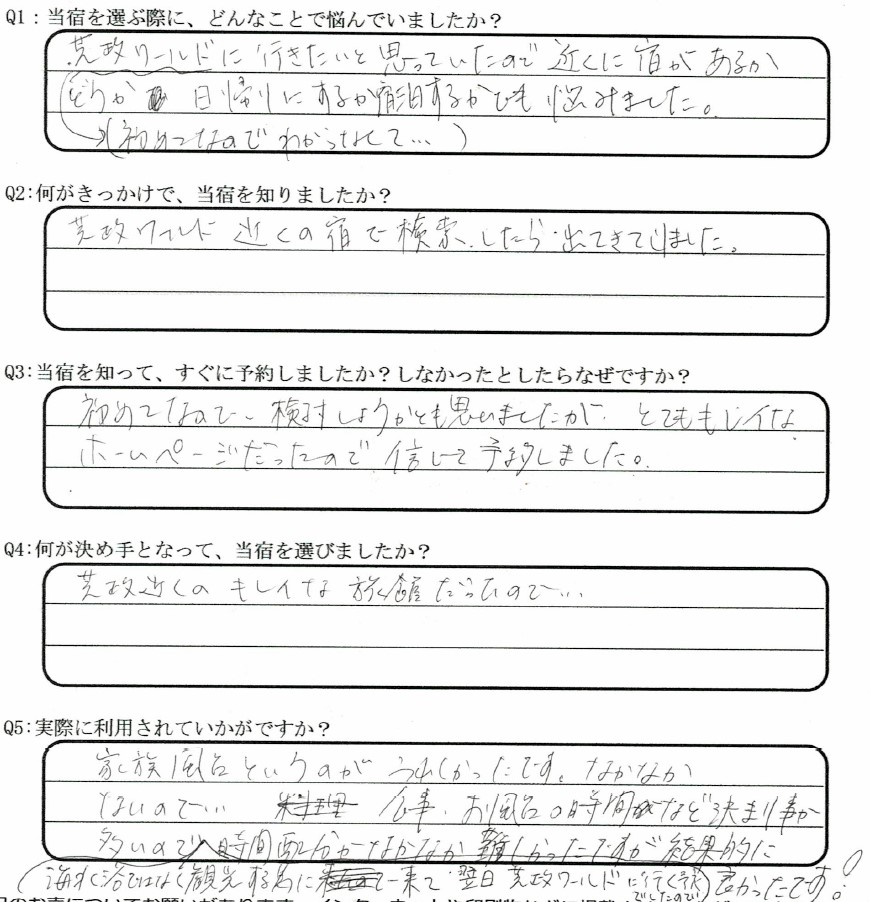 Q1：当宿を選ぶ際に、どんなことで悩んでいましたか？
芝政ワールドに行きたいと思っていたので近くに宿があるか
どうか 日帰りにするか宿泊するかでも悩みました。
→(初めてなのでわからなくて…)
Q2：何がきっかけで、当宿を知りましたか？
芝政ワールド近くの宿で検索したら出てきました。
Q3：当宿を知って、すぐに予約しましたか？しなかったとしたらなぜですか？
初めてなので、検討しようかとも思いましたが、とてもキレイな
ホームページだったので信じて予約しました。
Q4：何が決め手となって、当宿を選びましたか？
芝政近くのキレイな旅館だったので…
Q5：実際に利用されていかがですか？
家族風呂というのがうれしかったです。なかなか
ないので… 食事、お風呂の時間など決まり事が
多いので、時間配分がなかなか難しかったですが結果的に
(海水浴ではなく観光する為に来て翌日芝政ワールドに行く予定
でしたので)良かったです！